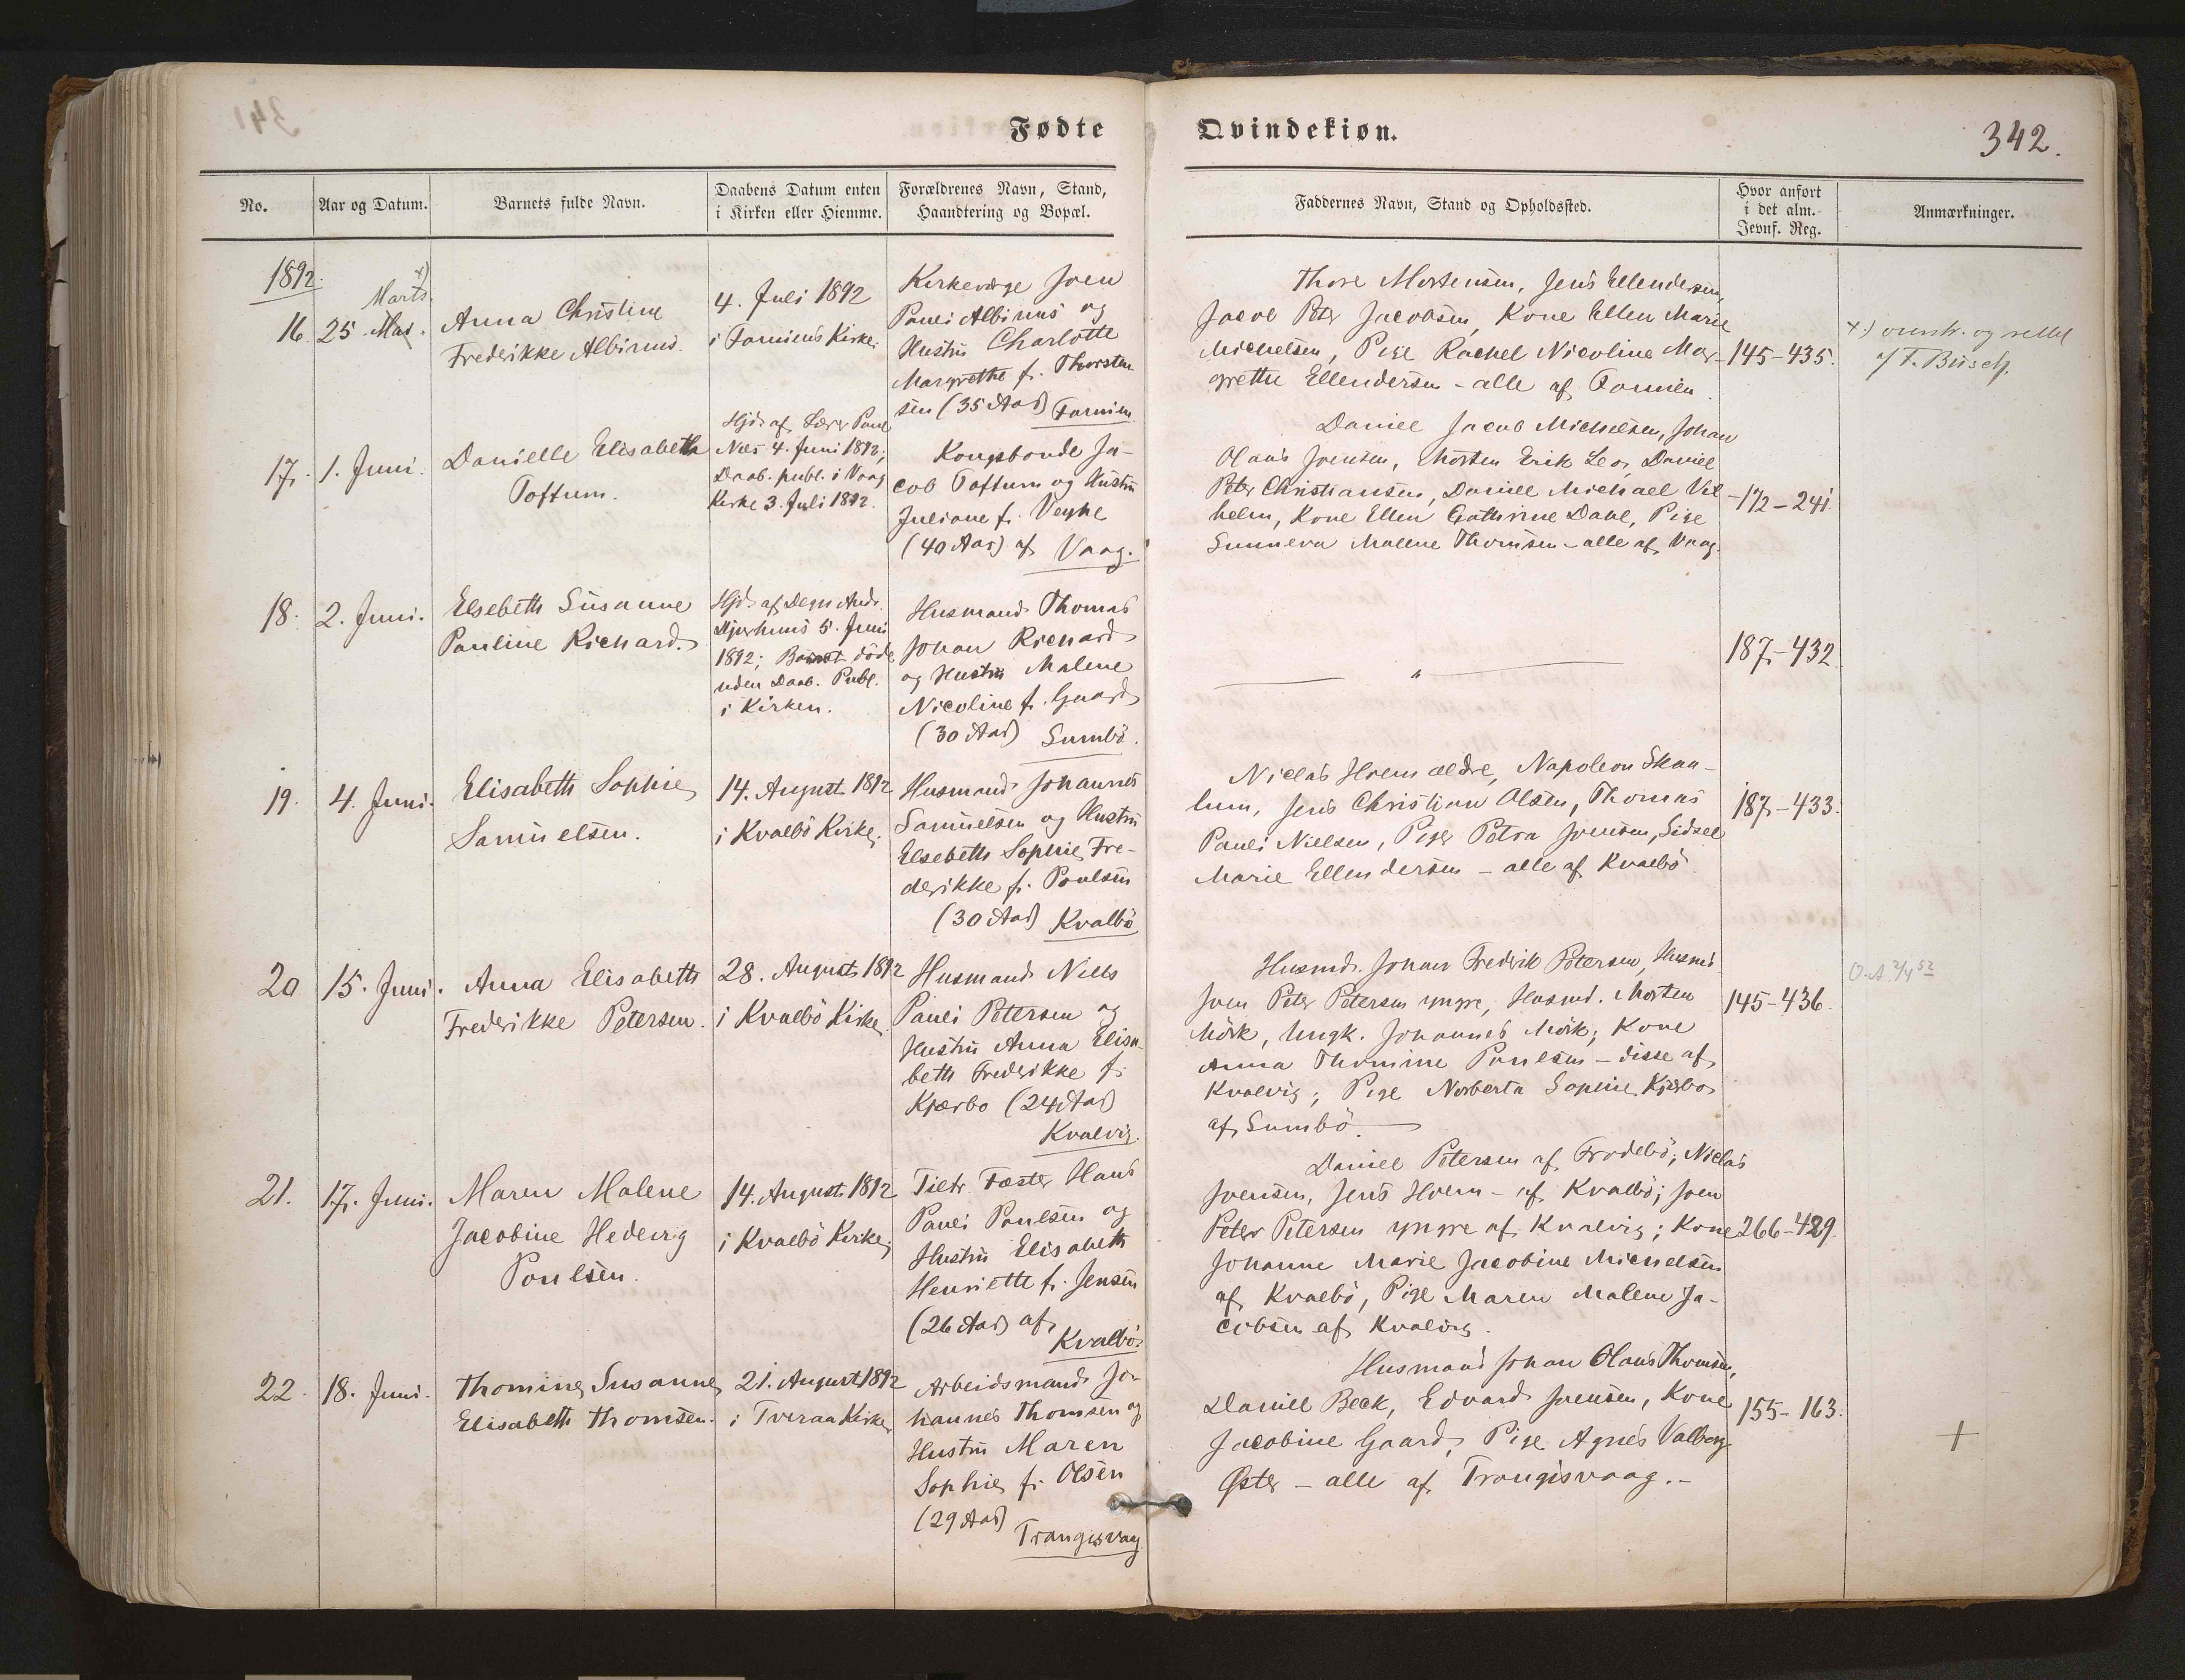 Fødte Qvindekiøn.
342.
No.
Aar og Datum.
Barnets fulde Navn.
Daabens Datum enten
i Kirken eller Hiemme.
Forældrenes Navn, Stand,
Haandtering og Bopæl.
Faddernes Navn, Stand og Opholdssted.
Hvor anført
i det alm.
Jevnf. Reg.
Anmærkninger.
1892.
16.
Marts. x)
25. Mai.
Anna Christine
Frederikke Albinus.
4. Juli 1892
i Famiens Kirke.
Kirkeværge Joen
Pauli Albinus og
Hustru Charlotte
Margrethe f. Thorsten-
sen (35 Aar) Famien
Thore Mortensen, Jens Ellendersen,
Jacob Peter Jacobsen, Kone Ellen Marie
Michelsen, Pige Rachel Nicoline Mar-
grethe Ellendersen - alle af Famien.
145-435.
x) overstr. og rettet
af F. Busch.
17.
1. Juni.
Danielle Elisabeth
Toftum.
Hjd. af Lærer Poul
Næs 4. Juni 1892;
Daab. publ. i Vaag
Kirke 3. Juli 1892.
Kongsbonde Ja-
cob Toftum og Hustru
Juliane f. Veyhe
(40 Aar) af Vaag.
Daniel Jacob Michelsen, Johan
Olaus Joensen, Morten Erik Leo, Daniel
Peter Christiansen, Daniel Michael Vil-
helm, Kone Ellen Cathrine Dahl, Pige
Sunneva Malene Thomsen - alle af Vaag.
172-241.
18.
2. Juni.
Elsebeth Susanne
Pauline Richard.
Hjd. af Degn Andr.
5. Juni
1892; Barnet døde
uden Daab. Publ.
i Kirken.
Husmand Thomas
Johan Richard
og Hustru Malene
Nicoline f. Gaard
(30 Aar) Sumbö.
"
187-432.
19.
4. Juni.
Elisabeth Sophie
Samuelsen.
14. August 1892
i Kvalbö Kirke.
Husmand Johannes
Samuelsen og Hustru
Elsebeth Sophie Fre-
derikke f. Poulsen
(30 Aar) Kvalbö
Niclas Holm ældre, Napoleon Skaa-
lum, Jens Christian Olsen, Thomas
Pauli Nielsen, Piger Petra Joensen, Sidsel
Marie Ellendersen - alle af Kvalbö.
187-433.
20
15. Juni.
Anna Elisabeth
Frederikke Petersen.
28. August 1892
i Kvalbö Kirke.
Husmand Niels
Pauli Petersen og
Hustru Anna Elisa-
beth Frederikke f.
Kjærbo (24 Aar)
Kvalvig.
Husmd. Johan Fredrik Petersen, Husmd
Joen Peter Petersen yngre, Husmd. Morten
Mörk, Ungk. Johannes Mörk, Kone
Anna Thomine Poulsen - disse af
Kvalvig; Pige Norberta Sophie Kjærbo
af Sumbö.
145-436.
O.A. 2/4 52
21.
17. Juni.
Maren Malene
Jacobine Hedevig
Poulsen.
14. August 1892
i Kvalbö Kirke,
Fæster Hans
Pauli Poulsen og
Hustru Elisabeth
Henriette f. Jensen
(26 Aar) af
Kvalbö.
Daniel Petersen af Frodebö; Niclas
Joensen, Jens Holm - af Kvalbö; Joen
Peter Petersen yngre af Kvalvig; Kone
Johanne Marie Jacobine Michelsen
af Kvalbö, Pige Maren Malene Ja-
cobsen af Kvalvig.
266-489.
22.
18. Juni.
Thomine Susanne
Elisabeth Thomsen.
21. August 1892
i Tveraa Kirke
Arbeidsmand Jo-
hannes Thomsen og
Hustru Maren
Sophie f. Olsen
(29 Aar)
Trangisvaag
Husmand Johan Olaus Thomsen,
Daniel Beck, Edvard Joensen, Kone
Jacobine Gaard, Pige Agnes Valborg
Øster - alle af Trangisvaag.-
155-163.
+